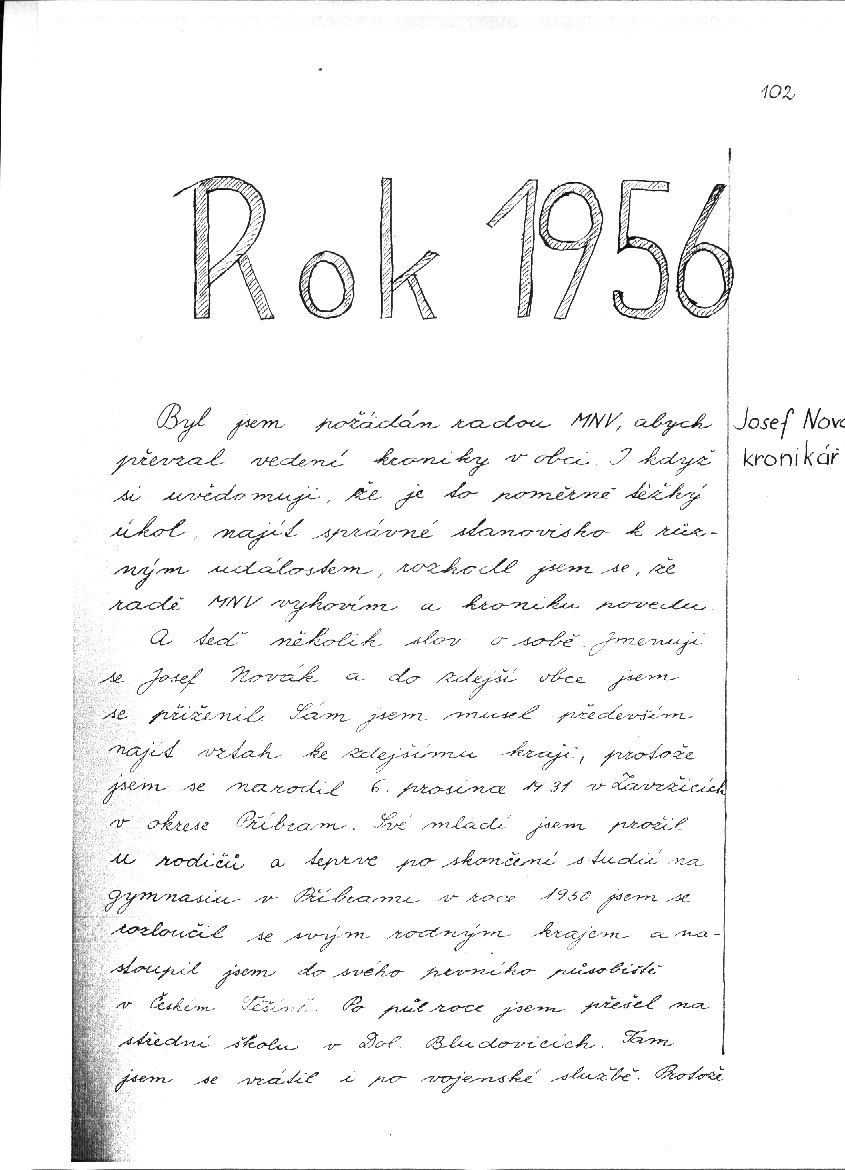 102
Rok 1956
Josef Nová
kronikář
Byl jsem požádán radou MNV, abych
převzal vedení kroniky v obci. I když
si uvědomuji, že je to poměrně těžký
úkol, najít správné stanovisko k růz-
ným událostem, rozhodl jsem se, že
radě MNV vyhovím a kroniku povedu.
A teď několik slov o sobě. Jmenuji
se Josef Novák a do zdejší obce jsem
se přiženil. Sám jsem musel především
najít vztah ke zdejšímu kraji, protože
jsem se narodil 6. prosince 1931 v
v okrese Příbram. Své mladí jsem prožil
u rodičů a teprve po skončení studií na
gymnasiu v Příbrami v roce 1950 jsem se
rozloučil se svým rodným krajem a na-
stoupil jsem do svého prvního působiště
v Českém Těšíně. Po půl roce jsem přešel na
střední školu v Dol. Bludovicích. Tam
jsem se vrátil i po vojenské službě. Protože